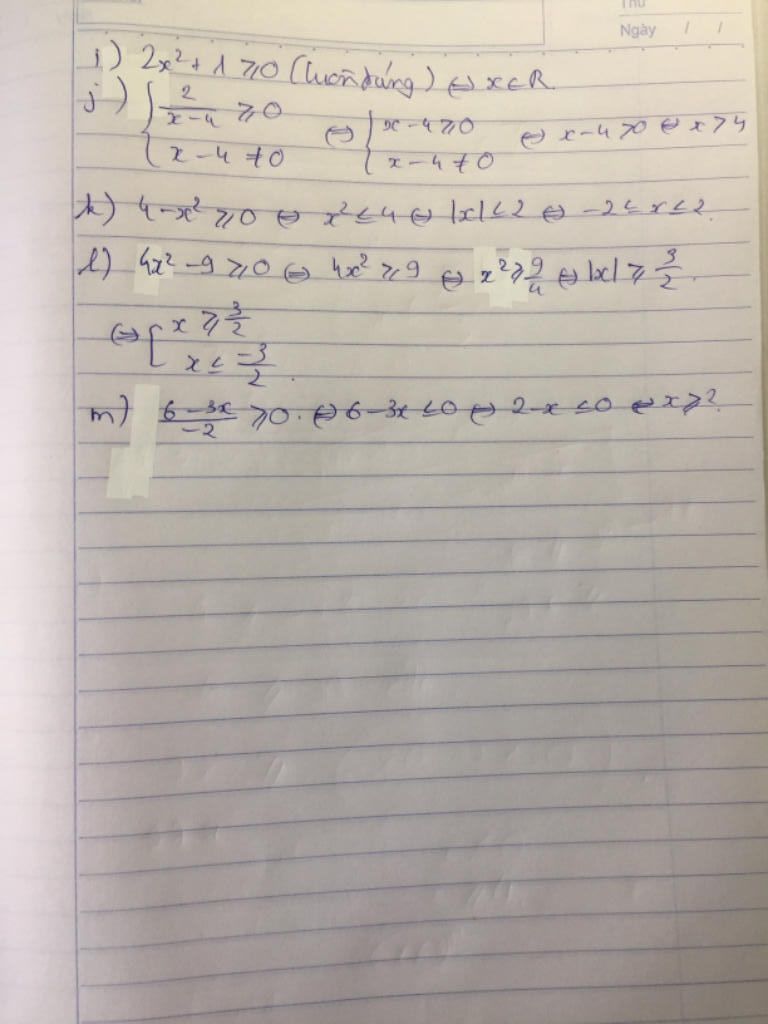 Thứ
Ngày / /
i) 2x² + 1 ⩾ 0 (luôn đúng) ⇔ x ∈ R.
j) { 2/(x-4) ⩾ 0 ⇔ { x-4 ⩾ 0 ⇔ x-4 > 0 ⇔ x > 4
x - 4 ≠ 0 x - 4 ≠ 0
k) 4 - x² ⩾ 0 ⇔ x² ≤ 4 ⇔ |x| ≤ 2 ⇔ -2 ≤ x ≤ 2.
l) 4x² - 9 ⩾ 0 ⇔ 4x² ⩾ 9 ⇔ x² ⩾ 9/4 ⇔ |x| ⩾ 3/2.
⇔ [ x ⩾ 3/2
x ≤ -3/2.
m) (6-3x)/-2 ⩾ 0. ⇔ 6-3x ≤ 0 ⇔ 2-x ≤ 0 ⇔ x ⩾ 2.